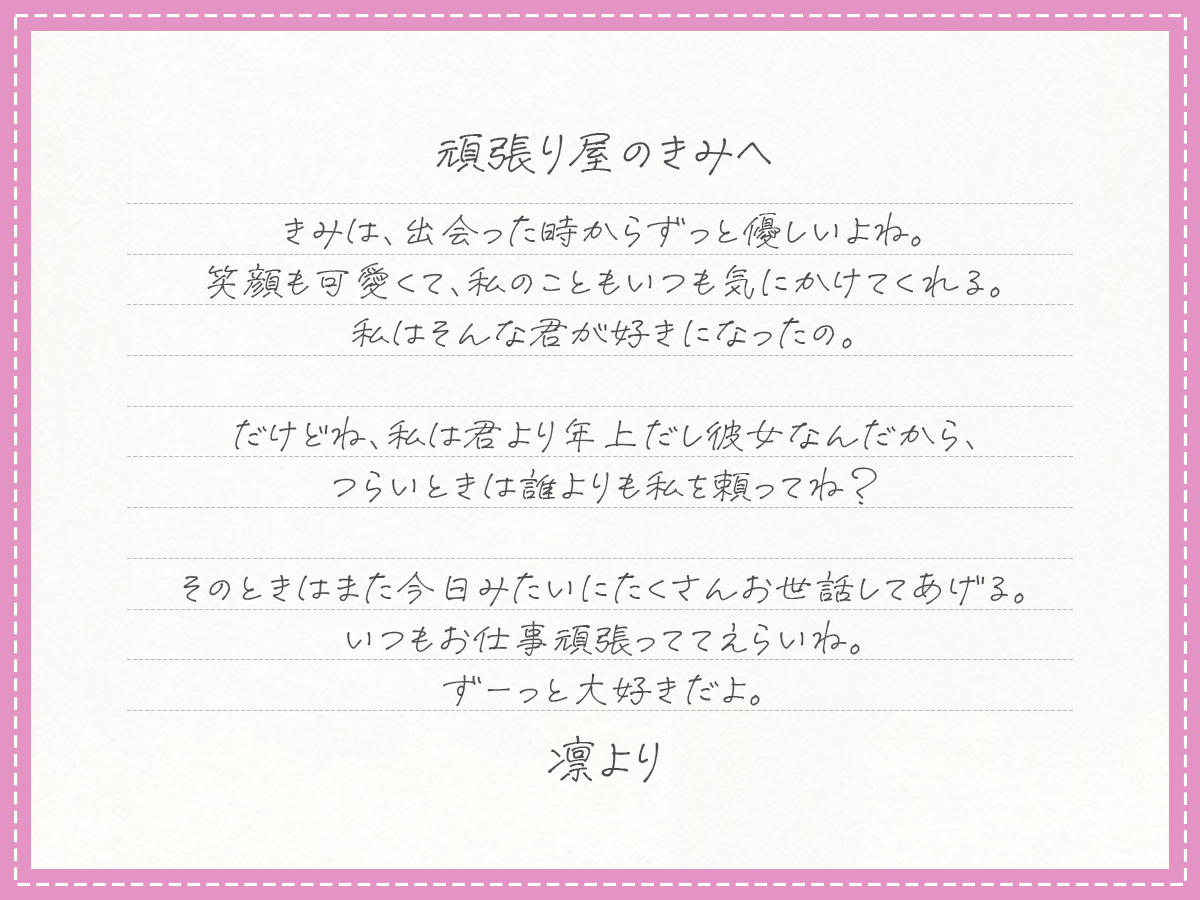 頑張り屋のきみへ
きみは、出会った時からずっと優しいよね。
笑顔も可愛くて、私のこともいつも気にかけてくれる。
私はそんな君が好きになったの。
だけどね、私は君より年上だし彼女なんだから、
つらいときは誰よりも私を頼ってね？
そのときはまた今日みたいにたくさんお世話してあげる。
いつもお仕事頑張っててえらいね。
ずーっと大好きだよ。
凛より